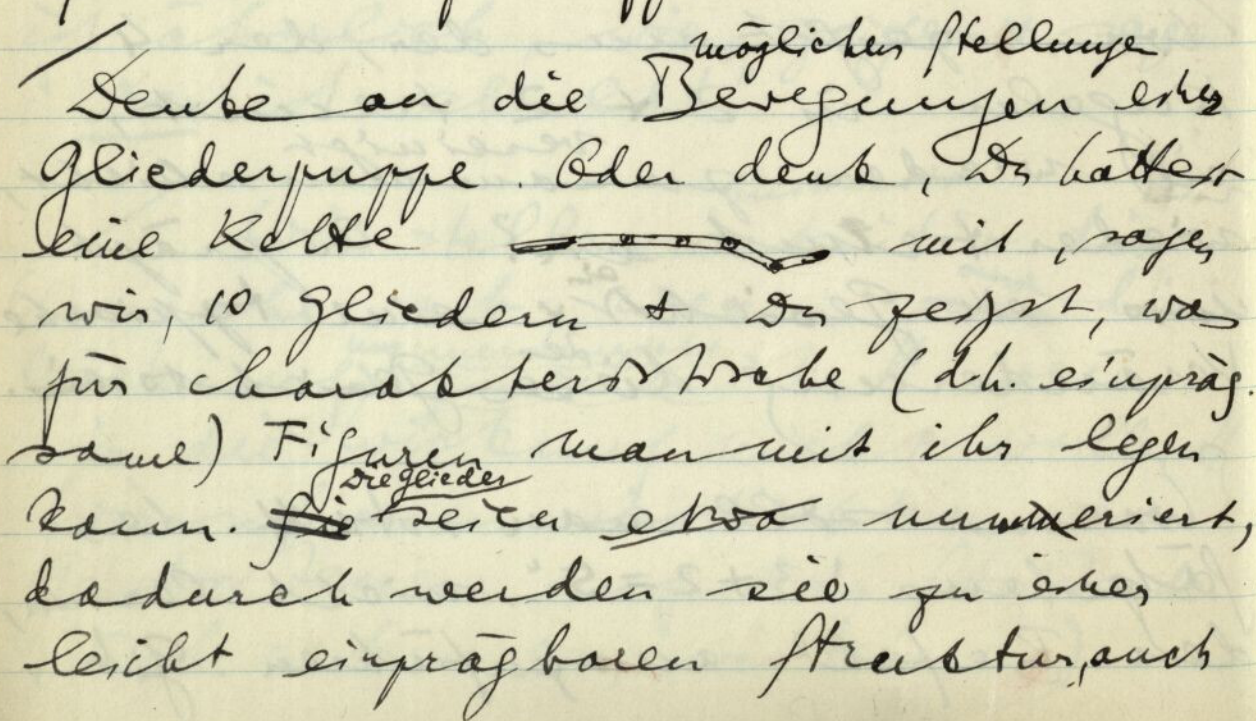 möglichen Stellungen
Denke an die Bewegungen einer
Gliederpuppe. Oder denk, Du hättest
eine Kette mit, sagen
wir, 10 Gliedern & Du zeigst, was
für charakteristische (d.h. einpräg-
same) Figuren man mit ihr legen
Die Glieder
kann. Sie seien etwa nummeriert,
dadurch werden sie zu einer
leicht einprägbaren Struktur, auch